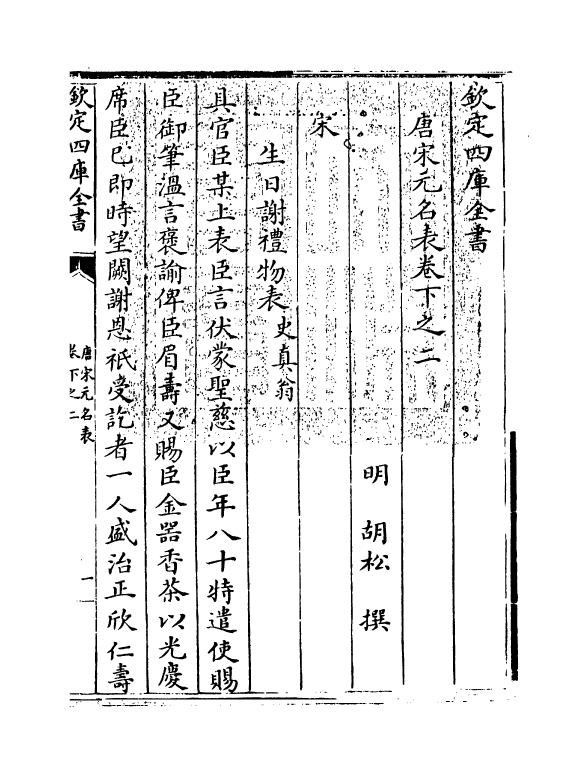 欽定四庫全書
唐宋元名表卷下之二
明 胡松 撰
宋
生日謝禮物表 史真翁
具官臣某上表臣言伏蒙聖慈以臣年八十特遣使賜
臣御筆溫言褒諭俾臣眉壽又賜臣金器香茶以光慶
席臣已即時望闕謝恩祇受訖者一人盛治正欣仁壽
欽定四庫全書
唐宋元名表
卷下之二
一